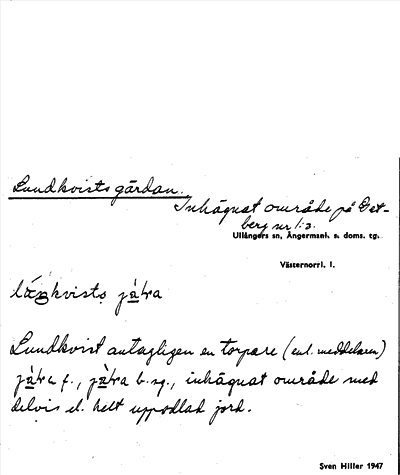 Lundkvistsgärdan.
Inhägnat område på Get-
berg nr 1:2.
Ullångers sn, Ångermanl. s. doms. tg.
Västernorrl. l.
Lundkvist antagligen en torpare (enl. meddelaren)
f., b. sg., inhägnat område med
delvis el. helt uppodlad jord.
Sven Hiller 1947